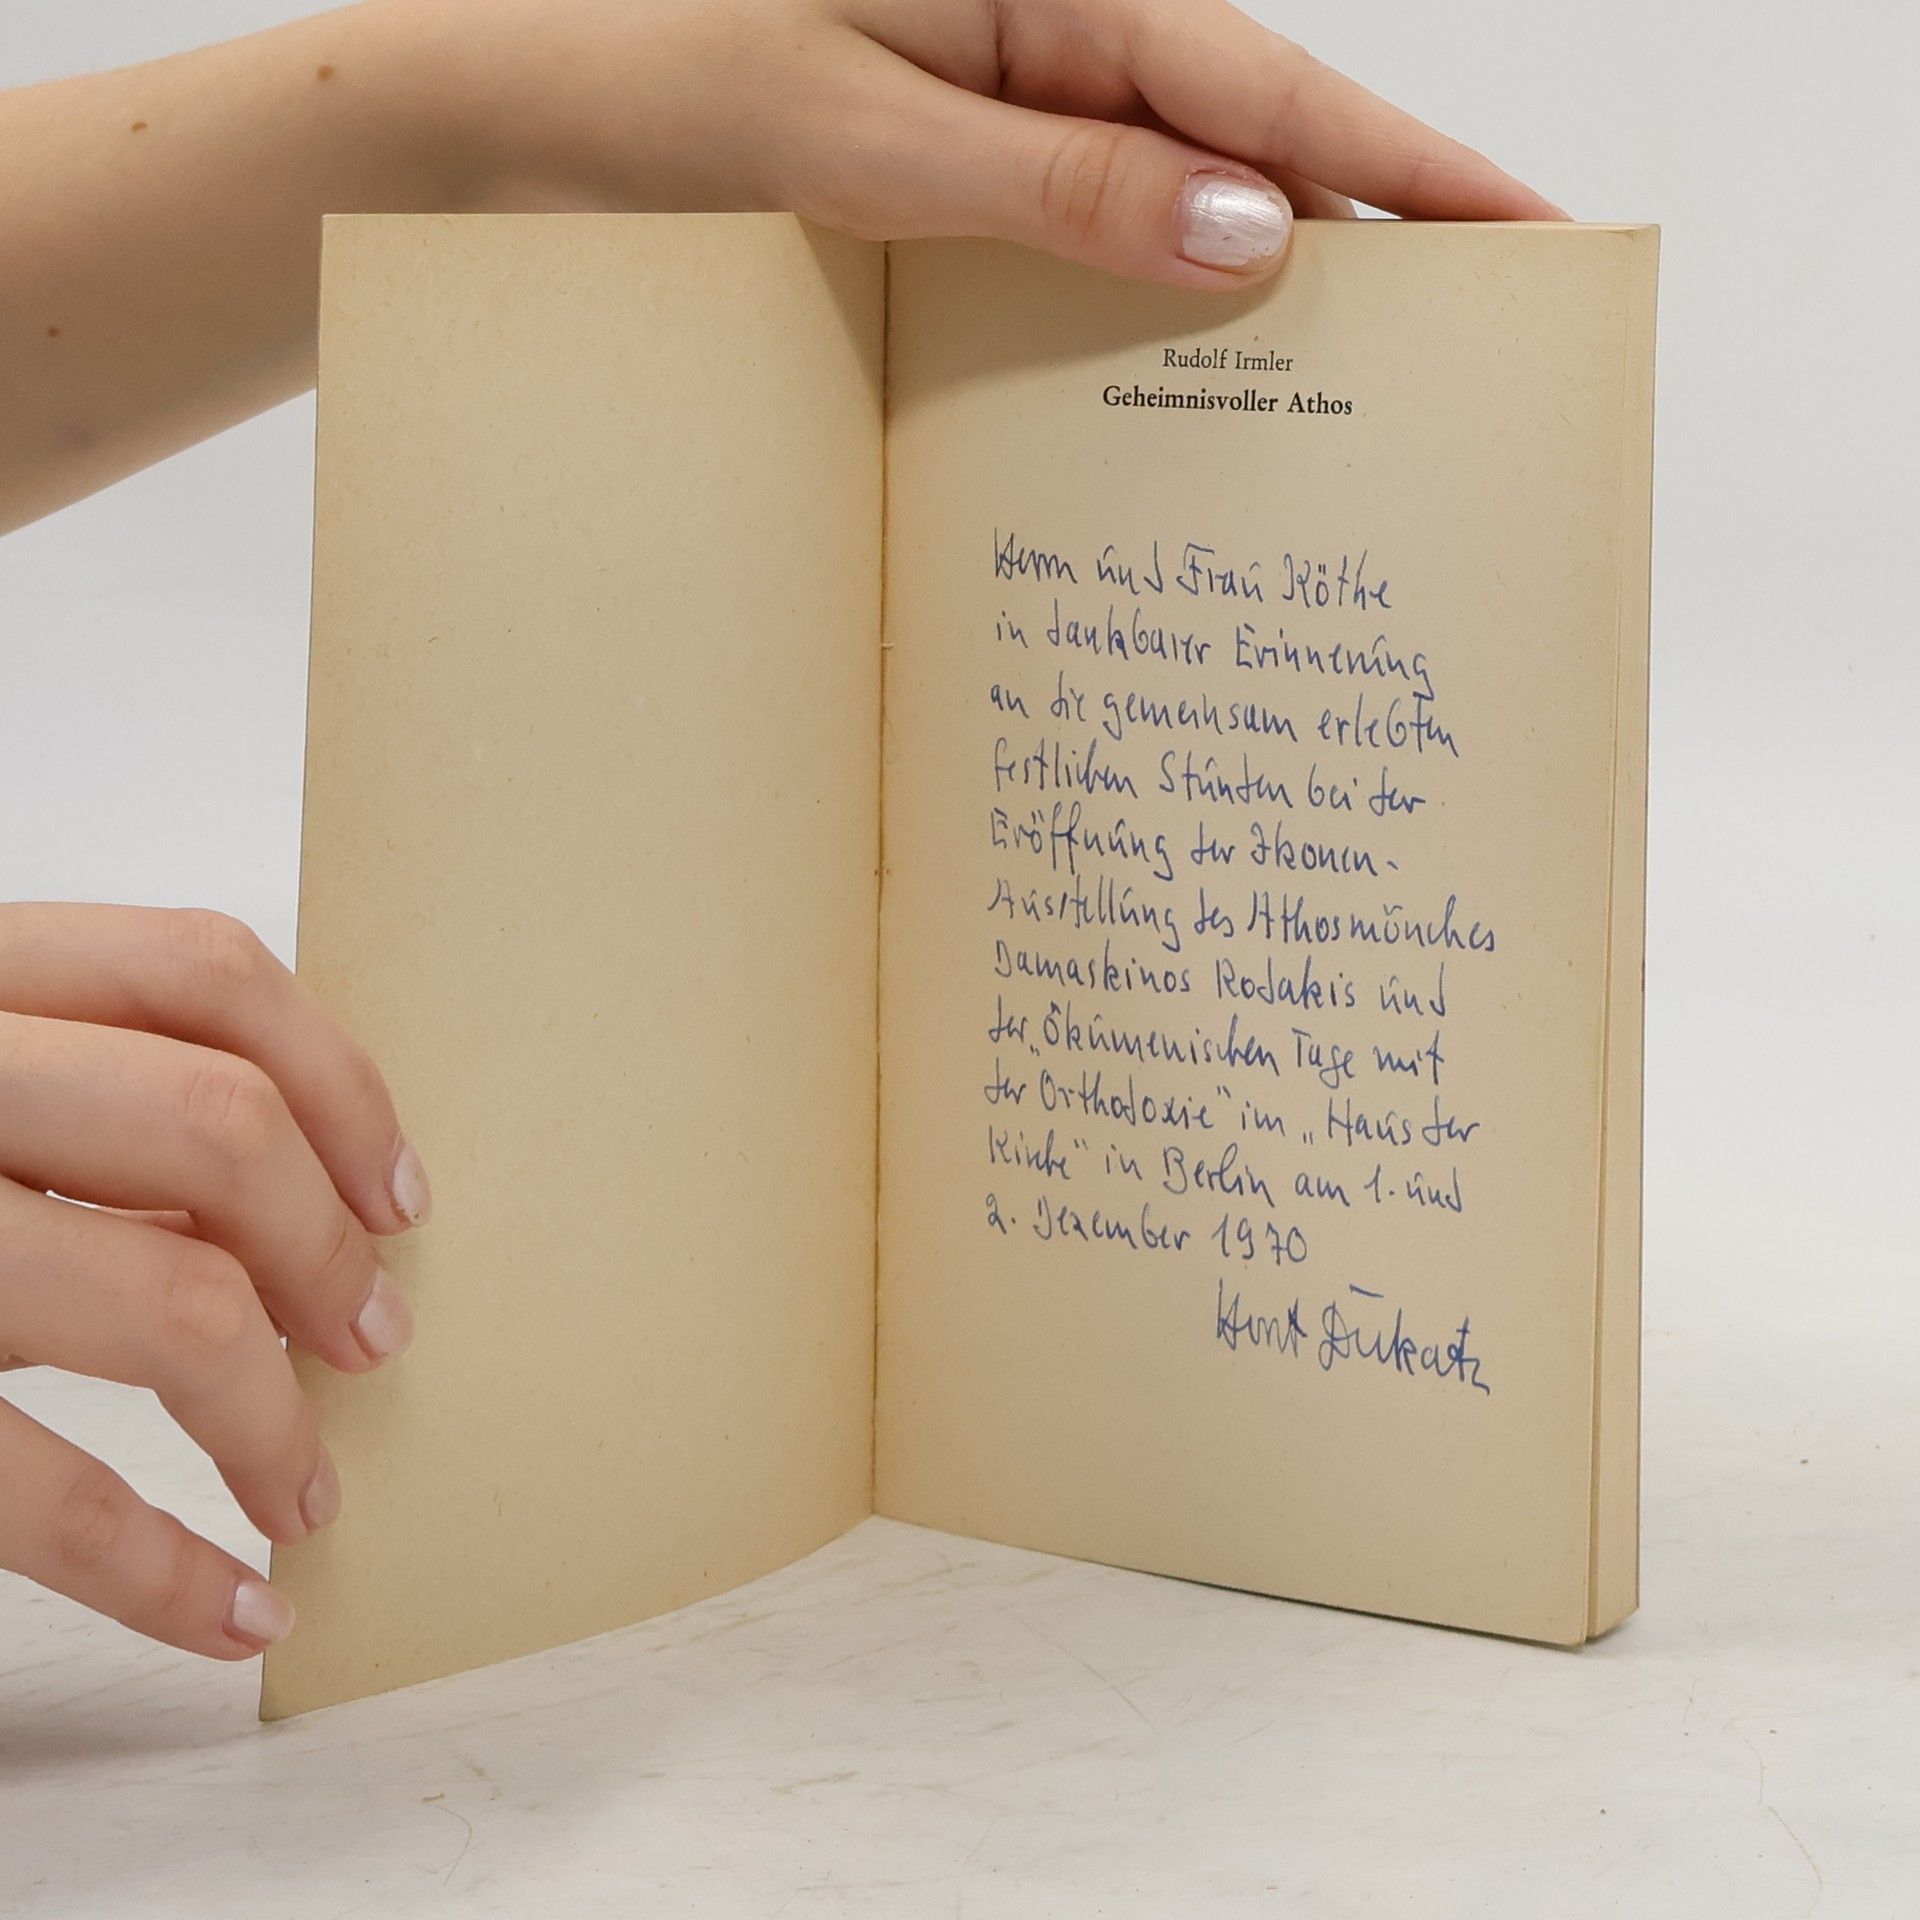 Rudolf Irmler
Geheimnisvoller Athos
Herrn und Frau Köthe
in dankbarer Erinnerung
an die gemeinsam erlebten
festlichen Stunden bei der
Eröffnung der Ikonen-
Ausstellung des Athosmönches
Damaskinos Rodakis und
der „Ökumenischen Tage mit
der Orthodoxie" im „Haus der
Kirche" in Berlin am 1. und
2. Dezember 1970
Horst